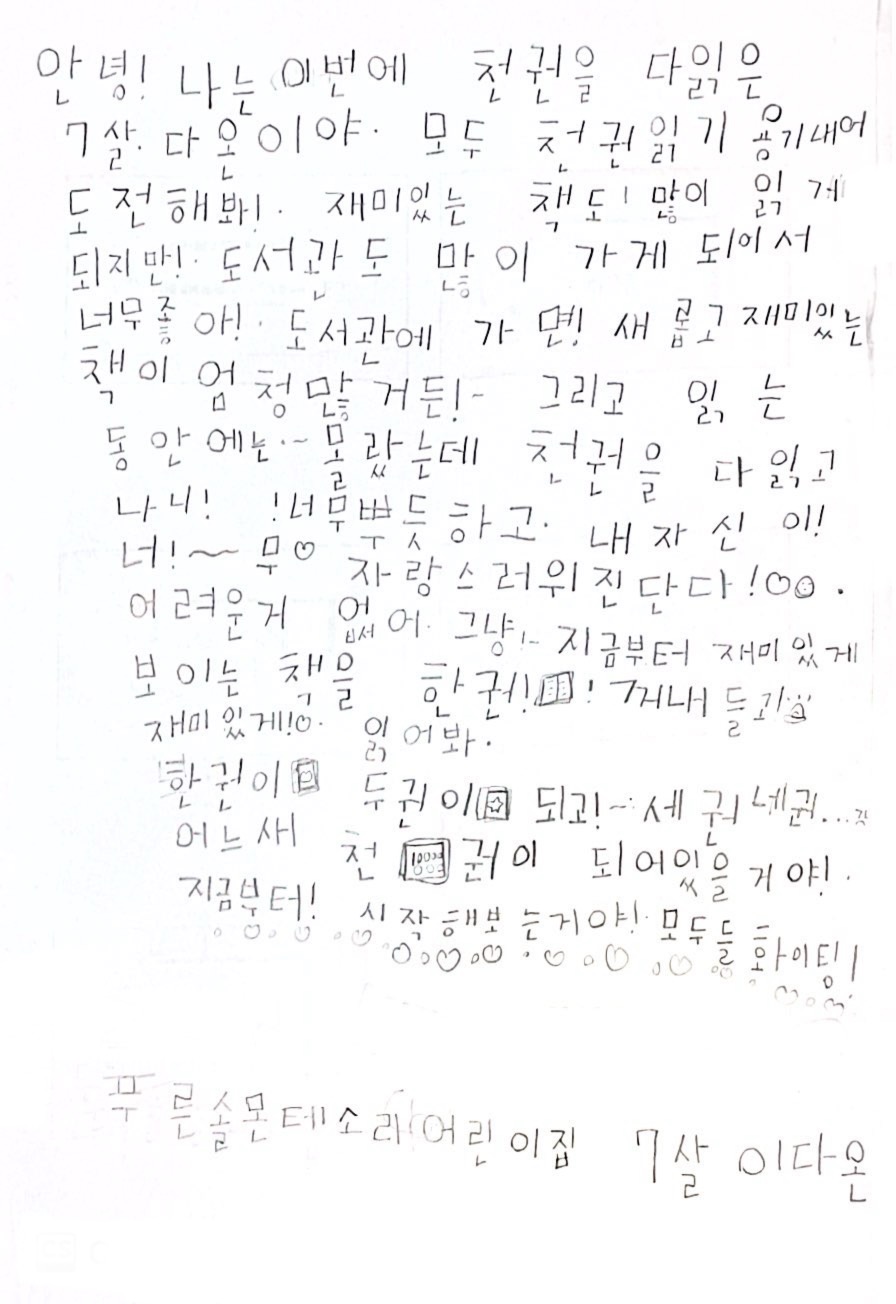 안녕! 나는 이번에 천권을 다읽은
7살. 다온이야. 모두 천권읽기 용기내어
도전해봐!. 재미있는 책도! 많이 읽게
되지만!. 도서관도 많이 가게 되어서
너무좋아!. 도서관에 가면! 새롭고 재미있는
책이 엄청많거든!~ 그리고 읽는
동안에는.~ 몰랐는데 천권을 다 읽고
나니! !너무뿌듯하고. 내 자신이!
너!~~ 무♡ 자랑스러워진단다!♡☺.
어려운게 없어. 그냥!~ 지금부터 재미있게
보이는 책을 한권!📖! 꺼내 들고!
재미있게!♡. 읽어봐.
한권이 두권이 되고!~ 세권 네권...
어느새 천 1000권 권이 되어있을거야!.
지금부터! 시작해보는거야!. 모두들 화이팅!
푸른솔몬테소리어린이집 7살 이다온